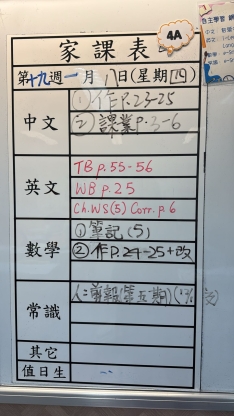 4A
家課表
第十九週 一月 日(星期四)
中文
① 作 P.23-25
② 課業 p. 3-6
英文
TB p. 55-56
WB p. 25
Ch. WS (5) Corr. p. 6
數學
① 筆記 (5)
② 作 P.24-25+改
常識
剪報(第五期)
其它
值日生